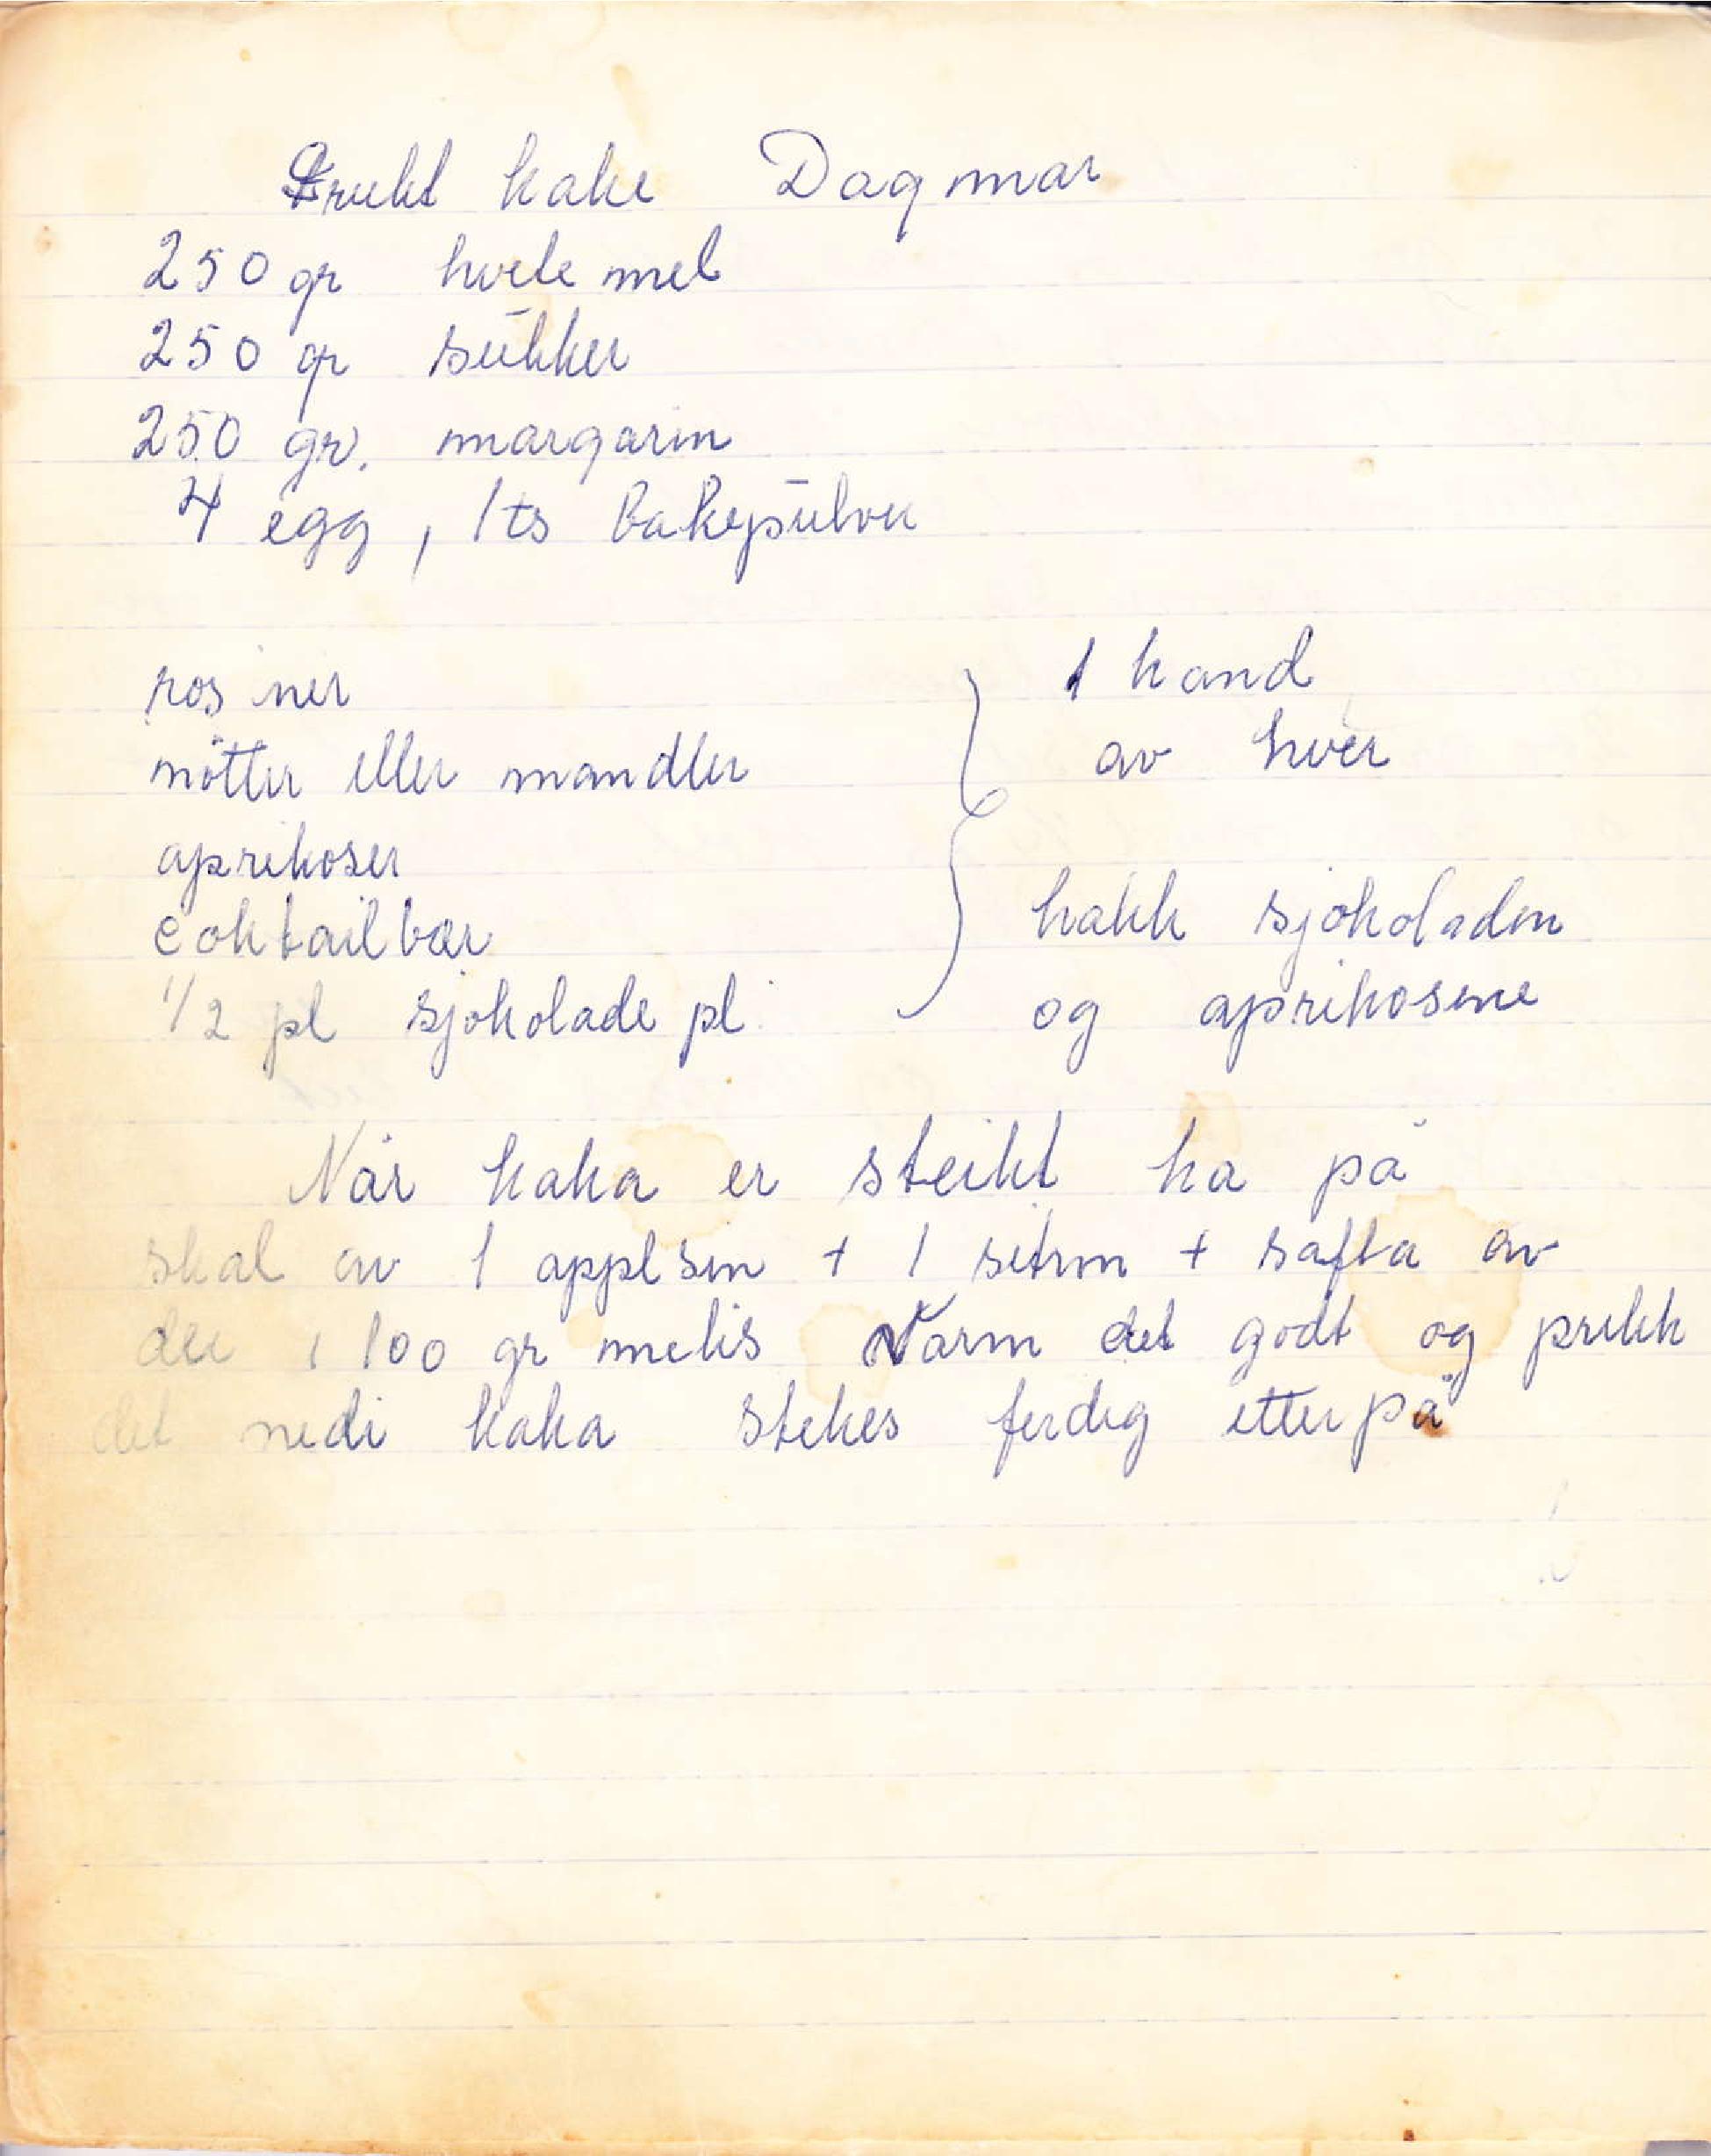 Frukt kake Dagmar
250 gr hvete mel
250 gr sukker
250 gr. margarin
4 egg, 1 ts bakepulver
rosiner
nötter eller mandler
aprikoser
coktailbær
1/2 pl sjokolade pl.
1 hand
av hver
hakk sjokoladen
og aprikosene
Når kaka er steikt ha på
skal av 1 applsin + 1 sitron + safta av
dei i 100 gr melis Varm det godt og prikk
det nedi kaka stekes ferdig etterpå